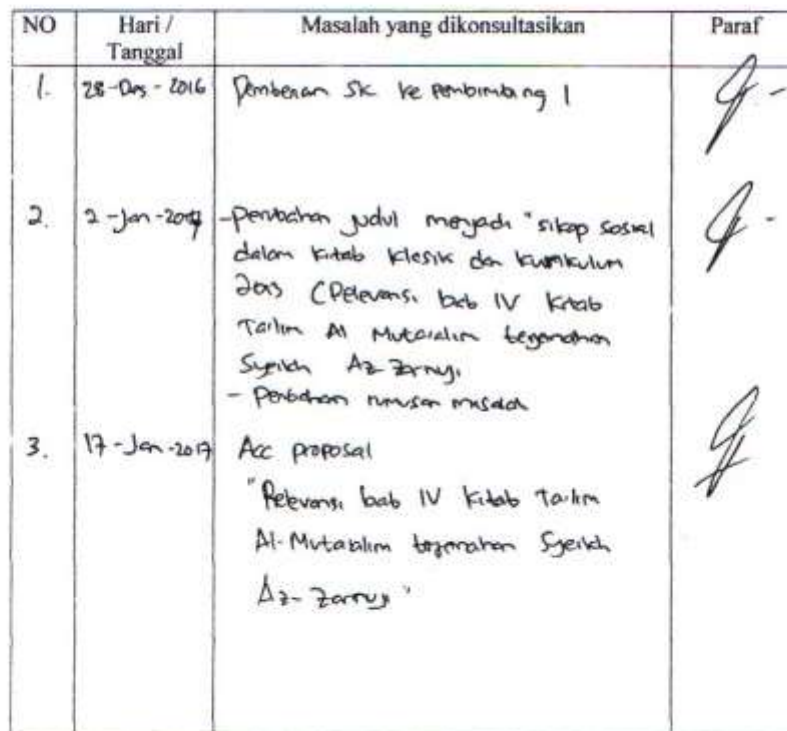 NO Hari / Tanggal Masalah yang dikonsultasikan Paraf
1. 28-Des-2016 Pemberian SK ke pembimbing 1
2. 2-Jan-2017 -perubahan judul menjadi "sikap sosial
dalam kitab klasik dan kurikulum
2013 (Relevansi bab IV kitab
Ta'lim Al Muta'alim terjemahan
Syeikh Az-Zarnuji
- Perubahan rumusan masalah
3. 17-Jan-2017 Acc proposal
"Relevansi bab IV kitab Ta'lim
Al-Muta'alim terjemahan Syeikh
Az-Zarnuji"